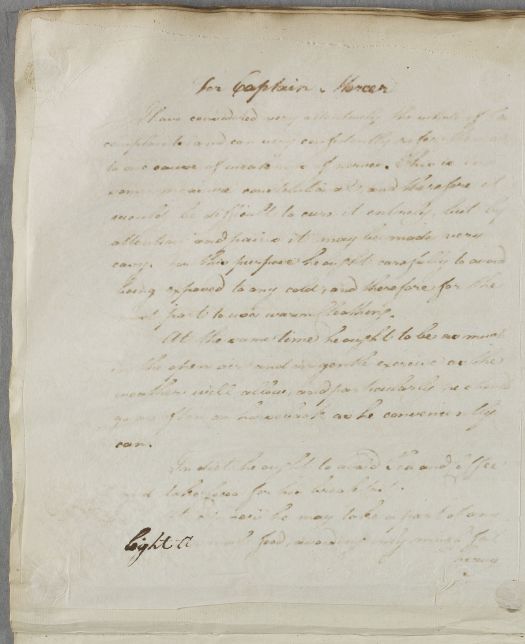 for Captain Mercer
I have considered very attentively the whole of the
complaints and can very confidently refer them all
to one cause of weakness of nerves. This is in
some measure constitutional and therefore it
would be difficult to cure it entirely, but by
attention and pains it may be made very
easy. For this purpose he ought carefully to avoid
being exposed to any cold; and therefore for the
part to wear warm Cloathing.
At the same time he ought to be as much
in the open air and in gentle exercise as the
weather will allow, and particularly he should
go as often on horseback as he conveniently
can.
In diet he ought to avoid Tea and Coffee
and take for his breakfast.
At dinner he may take a part of any
food, avoiding only much
light a